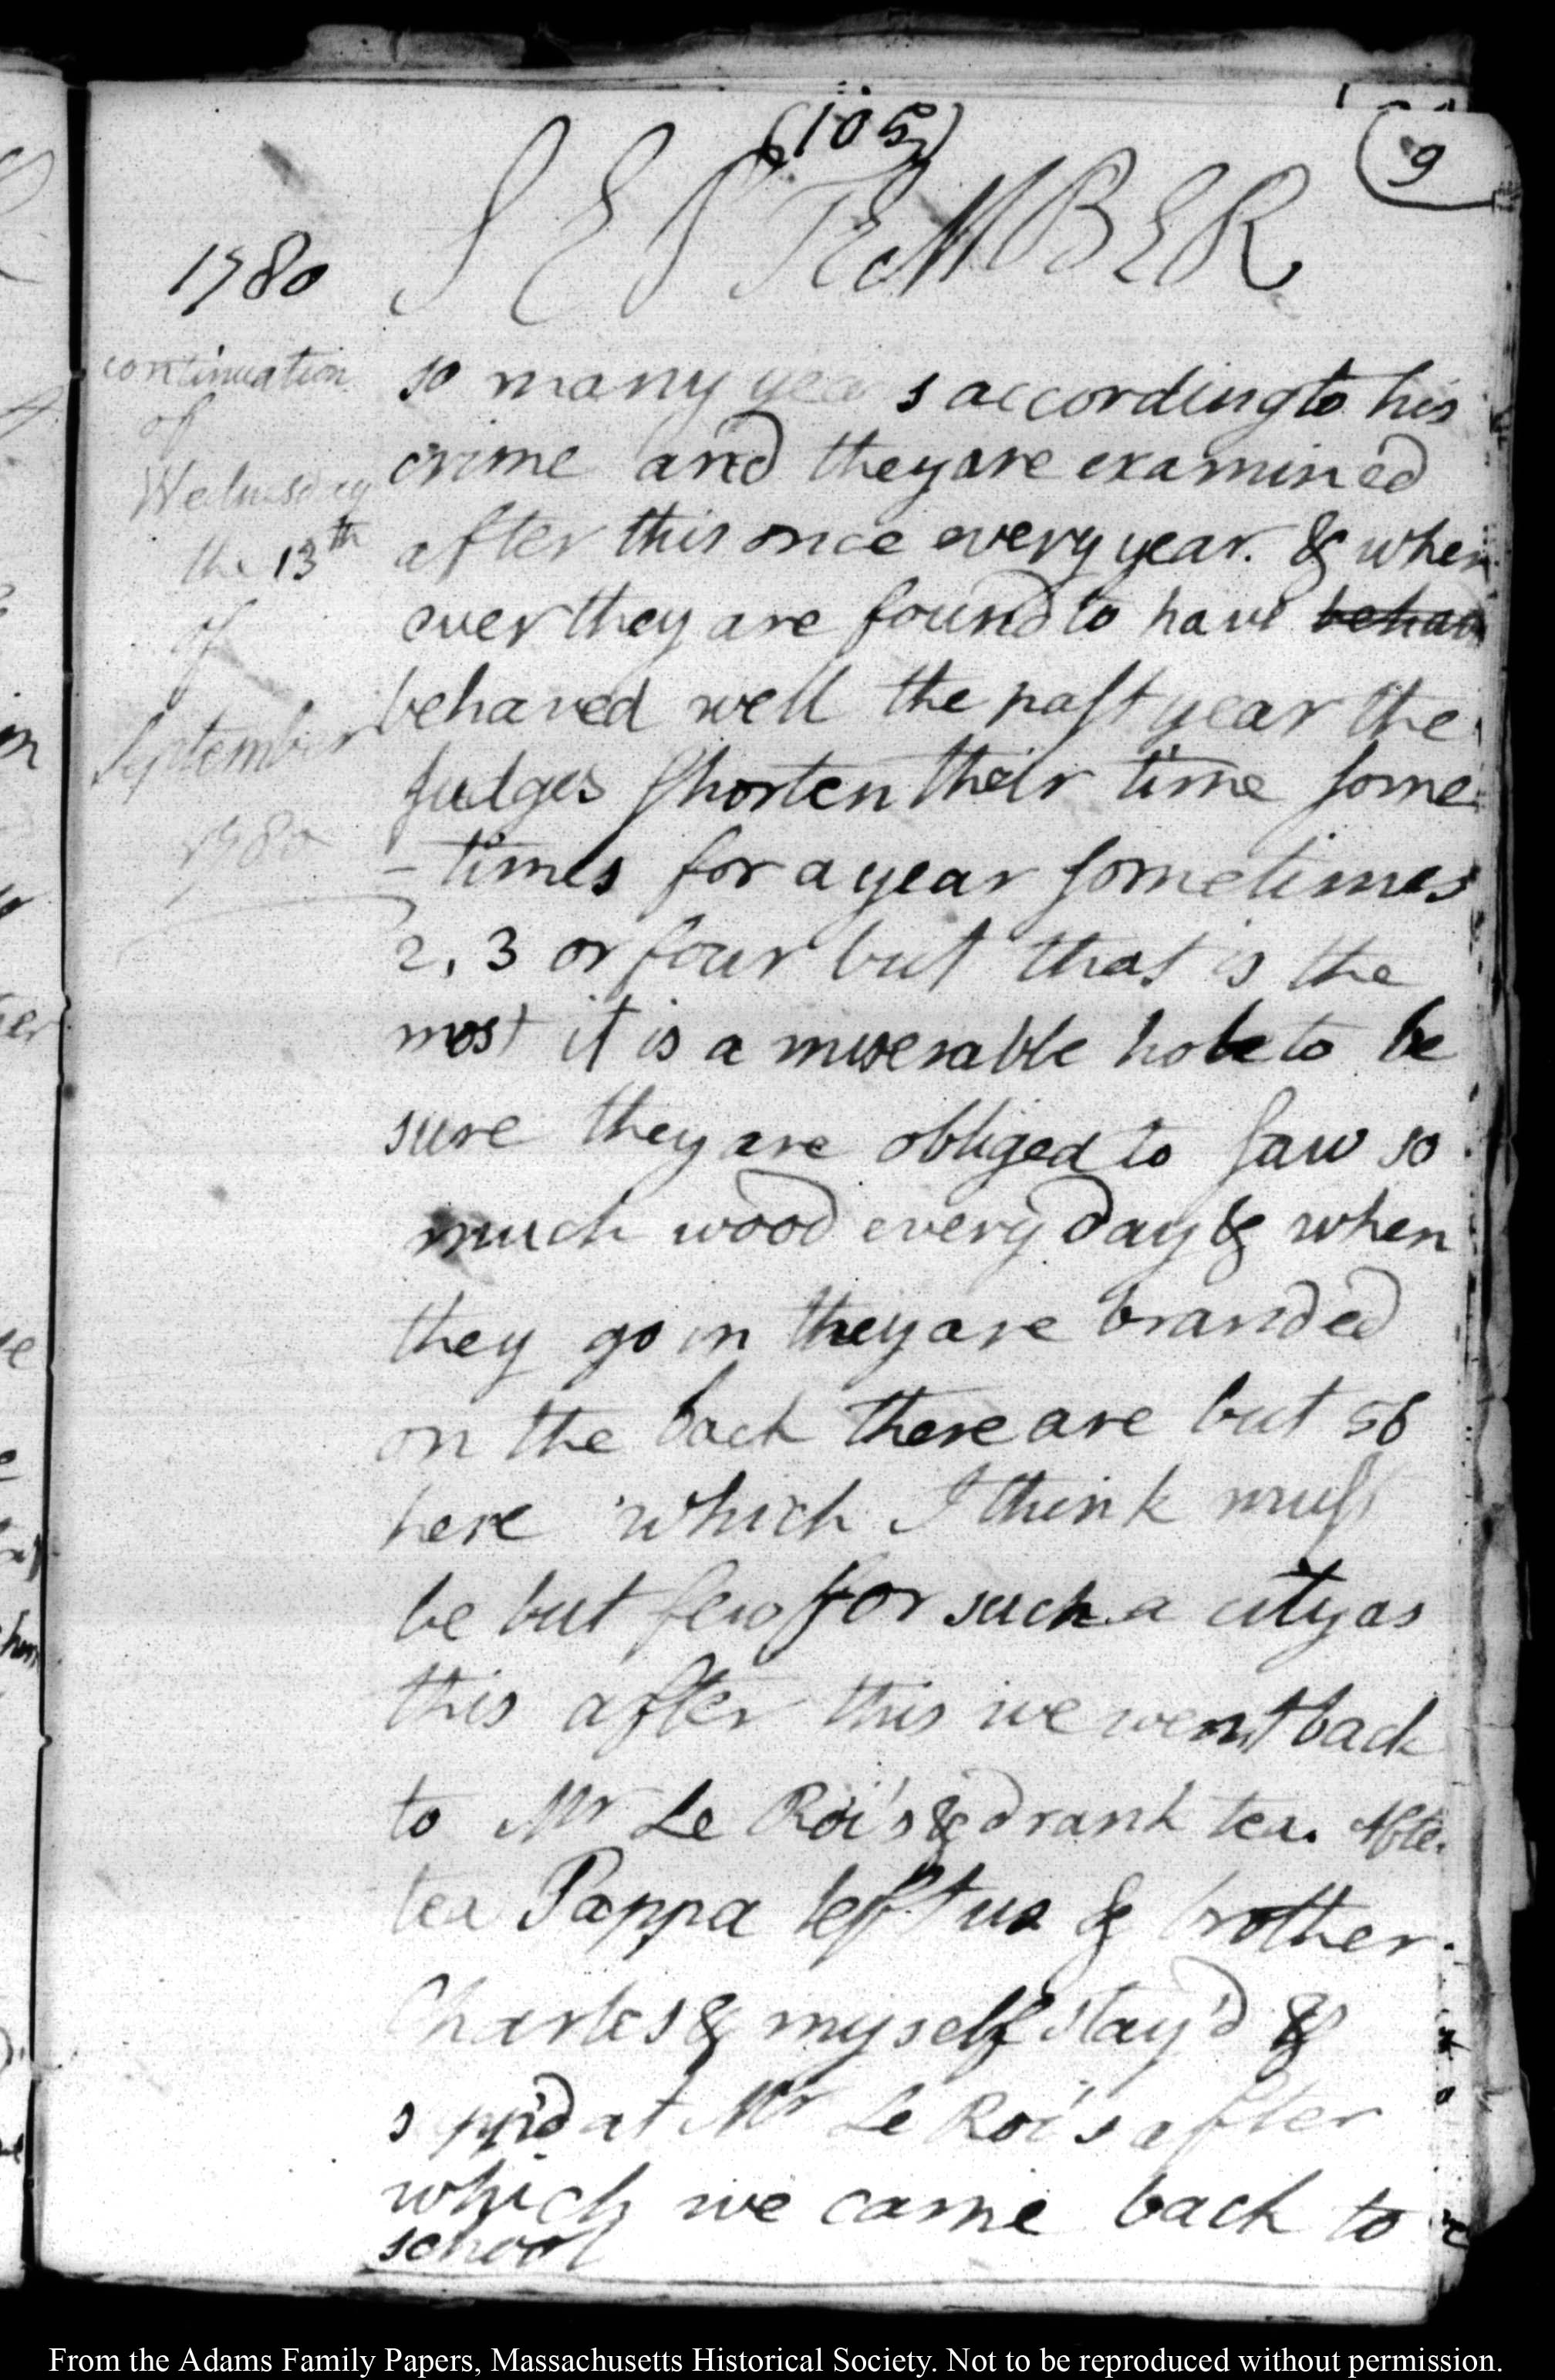 (105)
9
SEPTEMBER
1780
continuation
of
Wednesday
the 13th
of
September
1780
so many yea s according to his
crime and they are examined
after this once every year. & when
ever they are found to have behav
behaved well the past year the
judges shorten their time some
-times for a year sometimes
2, 3 or four but that is the
most it is a miserable hole to be
sure they are obliged to saw so
much wood every day & when
they go in they are branded
on the back there are but 56
here which I think must
be but few for such a city as
this after this we went back
to Mr Le Roi's & drank tea. After
tea Pappa left us & brother
Charles & myself stay'd &
supp'd at Mr Le Roi's after
which we came back to
school
From the Adams Family Papers, Massachusetts Historical Society. Not to be reproduced without permission.